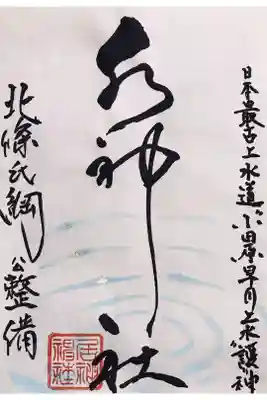 日本最古上水道小田原早川上水護神
水神社
北條氏綱公整備
居神
神社